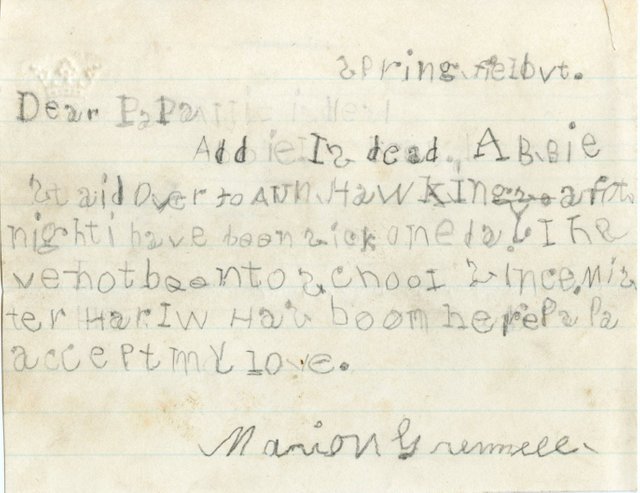 Springfielbvt.
Dear PaPa
Addie Is dead. Abbie
staid over to Ann. Hawkings a
night i have been sick one day I ha
ve not been to school since. Mis
ter Harlw Has boom here PaPa
accept my love.
Marion Grennell.